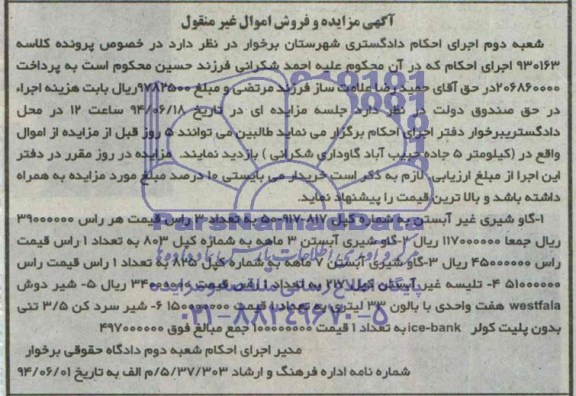 آگهی مزایده و فروش اموال غیر منقول
شعبه دوم اجرای احکام دادگستری شهرستان برخوار در نظر دارد در خصوص پرونده کلاسه
۹۳۰۱۶۳ اجرای احکام که در آن محکوم علیه احمد شکرانی فرزند حسین محکوم است به پرداخت
۲۰۶۸۶۰۰۰۰در حق آقای حمید رضا علامت ساز فرزند مرتضی و مبلغ ۹۷۸۲۵۰۰ریال بابت هزینه اجراء
در حق صندوق دولت در نظر دارد جلسه مزایده ای در تاریخ ۹۴/۰۶/۱۸ ساعت ۱۲ در محل
دادگستریبرخوار دفتر اجرای احکام برگزار می نماید طالبین می توانند ۵ روز قبل از مزایده از اموال
واقع در (کیلومتر ۵ جاده حبیب آباد گاوداری شکرانی ) بازدید نمایند. مزایده در روز مقرر در دفتر
این اجرا از مبلغ ارزیابی لازم به ذکر است خریدار می بایستی ۱۰ درصد مبلغ مورد مزایده به همراه
داشته باشد و بالا ترین قیمت را پیشنهاد نماید.
۱-گاو شیری غیر آبستن به شماره کپل ۸۱۷-۹۱۷-۵۰ به تعداد ۳ راس قیمت هر راس ۳۹۰۰۰۰۰۰
ریال جمعا ۱۱۷۰۰۰۰۰۰ ریال ۲-گاو شیری آبستن ۳ ماهه به شماره کپل ۸۰۳ به تعداد ۱ راس قیمت
راس ۴۵۰۰۰۰۰۰ ریال ۳-گاو شیری آبستن ۷ ماهه به شماره کپل ۸۲۵ به تعداد ۱ راس قیمت راس
۵۱۰۰۰۰۰۰ ۴- تلیسه غیر آبستن کپل ۲۷۷ به تعداد ۱ راس قیمت راس ریال ۵- شیر دوش
westfala هفت واحدی با بالون ۳۳ لیتری به تعداد ۱ قیمت ۱۵۰۰۰۰۰۰۰ ۶- شیر سرد کن ۳/۵ تنی
بدون پلیت کولر ice-bank به تعداد ۱ قیمت ۱۰۰۰۰۰۰۰۰ جمع مبالغ فوق ۴۹۷۰۰۰۰۰۰
مدیر اجرای احکام شعبه دوم دادگاه حقوقی برخوار
شماره نامه اداره فرهنگ و ارشاد ۵/۳۷/۳۰۳/م الف به تاریخ ۹۴/۰۶/۰۱
ParsNamadData
۰۲۱-۸۸۳۴۹۶۷۰-۵